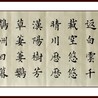 返白雲千
載空悠悠
晴川歷歷
漢陽樹芳
草萋萋鸚
鵡洲日暮